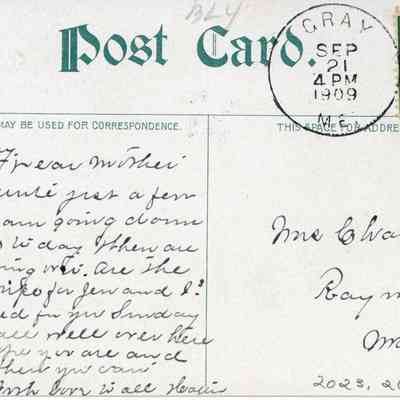 BLY
Post Card.
GRAY
SEP
21
4 PM
1909
ME.
MAY BE USED FOR CORRESPONDENCE.
THIS SPACE FOR ADDRE
Dear Mother
just a few
am going down
to day then are
are the
for Jen and I?
for you Sunday
all well over here
you are and
when you can
with love to all
Mrs Cha
Raym
2023, 20